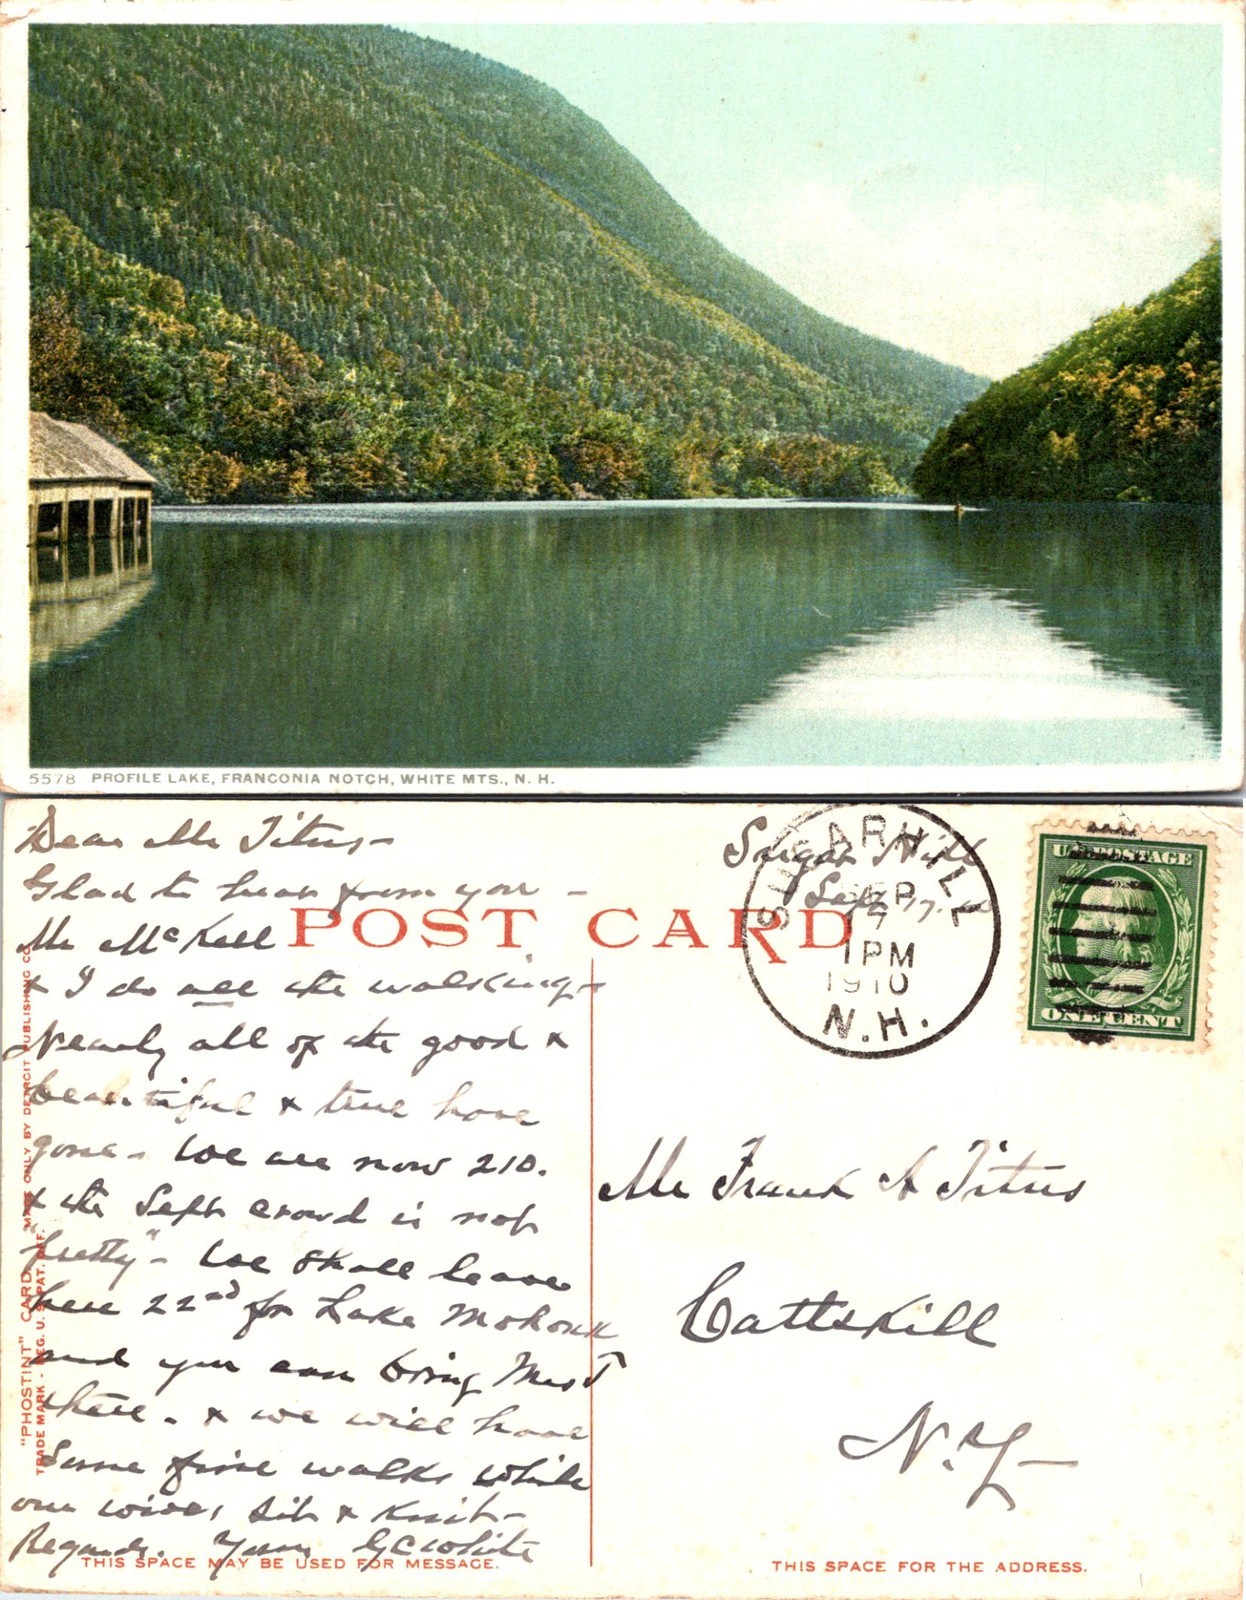 5578 PROFILE LAKE, FRANCONIA NOTCH, WHITE MTS., N. H.
Dear Mr Titus-
Glad to hear from you -
Mr McKell
& I do all the walking-
Nearly all of the good &
beautiful & true have
gone - We are now 210.
& the Sept crowd is not
"pretty" - We shall leave
here 22nd for Lake Mohonk
and you can bring Mrs T
there - & we will have
Some fine walks while
our wives sit & knit-
Regards. Yours GC White
Sugar Hill
Sept 7.
POST CARD
SUGAR HILL
SEP
7
1PM
1910
N.H.
U.S. POSTAGE
ONE CENT
Mr Frank A Titus
Cattskill
N.Y-
"PHOSTINT" CARD MADE ONLY BY DETROIT PUBLISHING CO.
TRADE MARK - REG. U. S. PAT. OFF.
THIS SPACE MAY BE USED FOR MESSAGE.
THIS SPACE FOR THE ADDRESS.